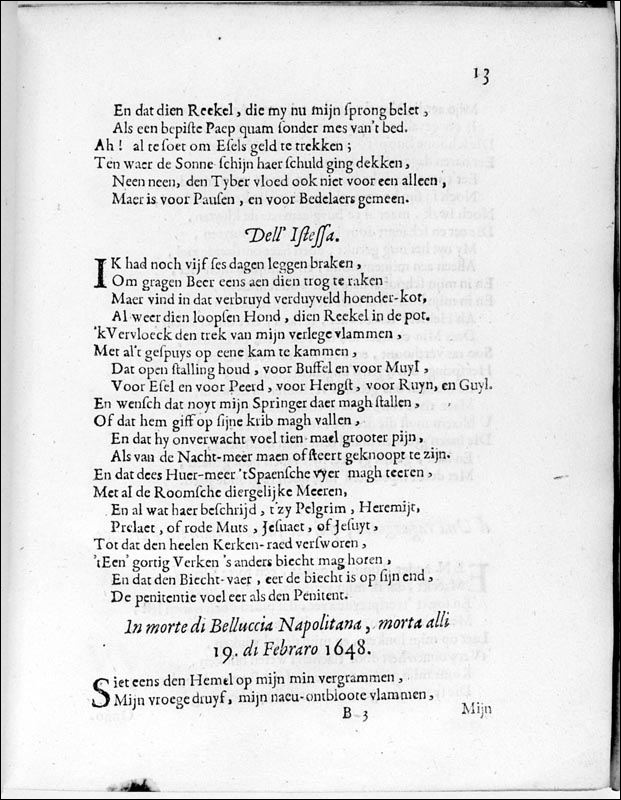 13
En dat dien Reekel, die my nu mijn sprong belet,
Als een bepiste Paep quam sonder mes van't bed.
Ah! al te soet om Esels geld te trekken;
Ten waer de Sonne-schijn haer schuld ging dekken,
Neen neen, den Tyber vloed ook niet voor een alleen,
Maer is voor Pausen, en voor Bedelaers gemeen.
Dell' Istessa.
IK had noch vijf ses dagen leggen braken,
Om gragen Beer eens aen dien trog te raken
Maer vind in dat verbruyd verduyveld hoender-kot,
Al weer dien loopsen Hond, dien Reekel in de pot.
'k Vervloeck den trek van mijn verlege vlammen,
Met al't gespuys op eene kam te kammen,
Dat open stalling houd, voor Buffel en voor Muyl,
Voor Esel en voor Peerd, voor Hengst, voor Ruyn, en Guyl.
En wensch dat noyt mijn Springer daer magh stallen,
Of dat hem giff op sijne krib magh vallen,
En dat hy onverwacht voel tien-mael grooter pijn,
Als van de Nacht-meer maen of steert geknoopt te zijn.
En dat dees Huer-meer 't Spaensche vyer magh teeren,
Met al de Roomsche diergelijke Meeren,
En al wat haer beschrijd, t'zy Pelgrim, Heremijt,
Prelaet, of rode Muts, Jesuaet, of Jesuyt,
Tot dat den heelen Kerken-raed versworen,
't Een' gortig Verken 's anders biecht mag horen,
En dat den Biecht-vaer, eer de biecht is op sijn end,
De penitentie voel eer als den Penitent.
In morte di Belluccia Napolitana, morta alli
19. di Febraro 1648.
Siet eens den Hemel op mijn min vergrammen,
Mijn vroege druyf, mijn naeu-ontbloote vlammen,
B 3
Mijn